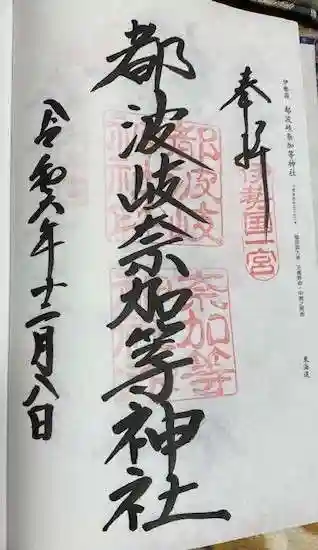 伊勢国 都波岐奈加等神社
東海道
奉拝
伊勢国一宮
都波岐奈加等神社
都波岐
奈加等
令和六年十二月八日